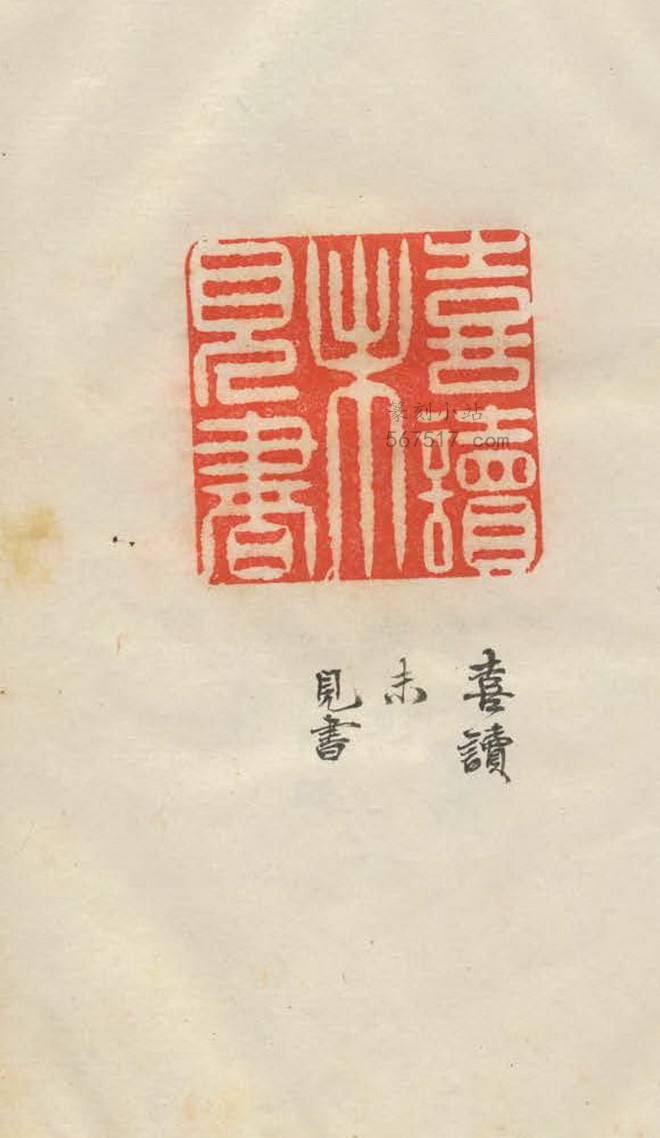 喜讀
未
見書
篆刻小站
567517.com
喜讀
未
見書